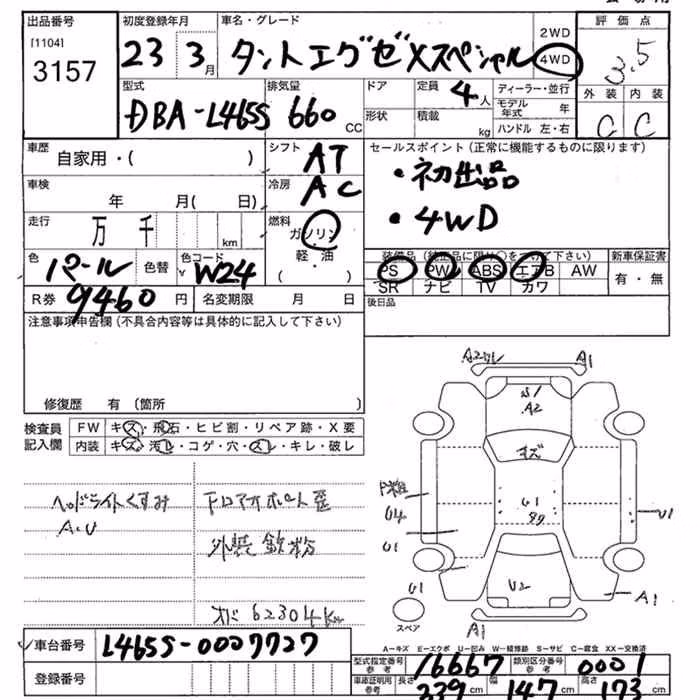 出品番号 初度登録年月 車名・グレード 2WD 評価点
[1104] 3157 23 3月 タントエグゼXスペシャル 4WD 3.5
型式 排気量 ドア 定員 4人 ディーラー・並行 外装 内装
DBA-L465S 660 CC 形状 積載 kg モデル年式 年 C C
ハンドル 左・右
車歴 自家用・( ) シフト AT セールスポイント(正常に機能するものに限ります)
車検 年 月( 日) 冷房 AC ・初出品
走行 万 千 km 燃料 ガソリン 軽・油 ( ・ ) ・4WD
色 パール 色替 色コード W24 装備品(純正品に限り○をつけて下さい) 新車保証書
PS PW ABS エアB AW 有・無
SR ナビ TV カワ
R券 9460 円 名変期限 月 日 後日品
注意事項申告欄(不具合内容等は具体的に記入して下さい)
修復歴 有 (箇所 )
検査員記入欄 FW キズ・飛石・ヒビ割・リペア跡・X要
内装 キズ・汚レ・コゲ・穴・スレ・キレ・破レ
ヘッドライトくすみ
A.U
外装 鉄粉
メーター 62304Km
A1
A2
キズ
U1
U4
U1
U1
U2
U1
A1
A1
スペア
A—キズ E—エクボ U—凹み W—補修跡 S—サビ C—腐食 XX—交換済
車台番号 L465S-0007727
登録番号
型式指定番号 参考 16667 類別区分番号 参考 0001
車庫証明用 参考 長さ 339cm 幅 147cm 高さ 173cm